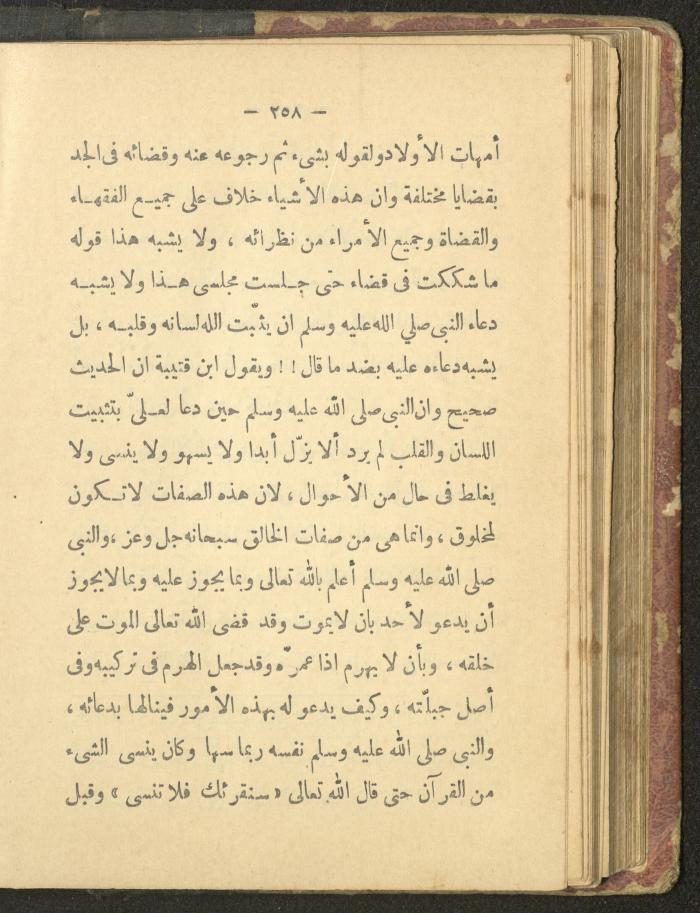 — ٢٥٨ —
أمهات الأولاد ولقوله بشىء ثم رجوعه عنه وقضائه فى الجد
بقضايا مختلفة وان هذه الأشياء خلاف على جميع الفقهاء
والقضاة وجميع الأمراء من نظرائه ، ولا يشبه هذا قوله
ما شككت فى قضاء حتى جلست مجلسى هذا ولا يشبه
دعاء النبى صلي الله عليه وسلم ان يثبّت الله لسانه وقلبه ، بل
يشبه دعاءه عليه بضد ما قال ! ! ويقول ابن قتيبة ان الحديث
صحيح وان النبى صلى الله عليه وسلم حين دعا لعلىّ بتثبيت
اللسان والقلب لم يرد ألا يزّل أبدا ولا يسهو ولا ينسى ولا
يغلط فى حال من الأحوال ، لان هذه الصفات لا تكون
لمخلوق ، وانما هى من صفات الخالق سبحانه جل وعز ، والنبى
صلى الله عليه وسلم أعلم بالله تعالى وبما يجوز عليه وبما لا يجوز
أن يدعو لأحد بان لا يموت وقد قضى الله تعالى الموت على
خلقه ، وبأن لا يهرم اذا عمرّه وقد جعل الهرم فى تركيبه وفى
أصل جبلّته ، وكيف يدعو له بهذه الأمور فينالها بدعائه ،
والنبى صلى الله عليه وسلم نفسه ربما سها وكان ينسى الشىء
من القرآن حتى قال الله تعالى « سنقرئك فلا تنسى » وقبل